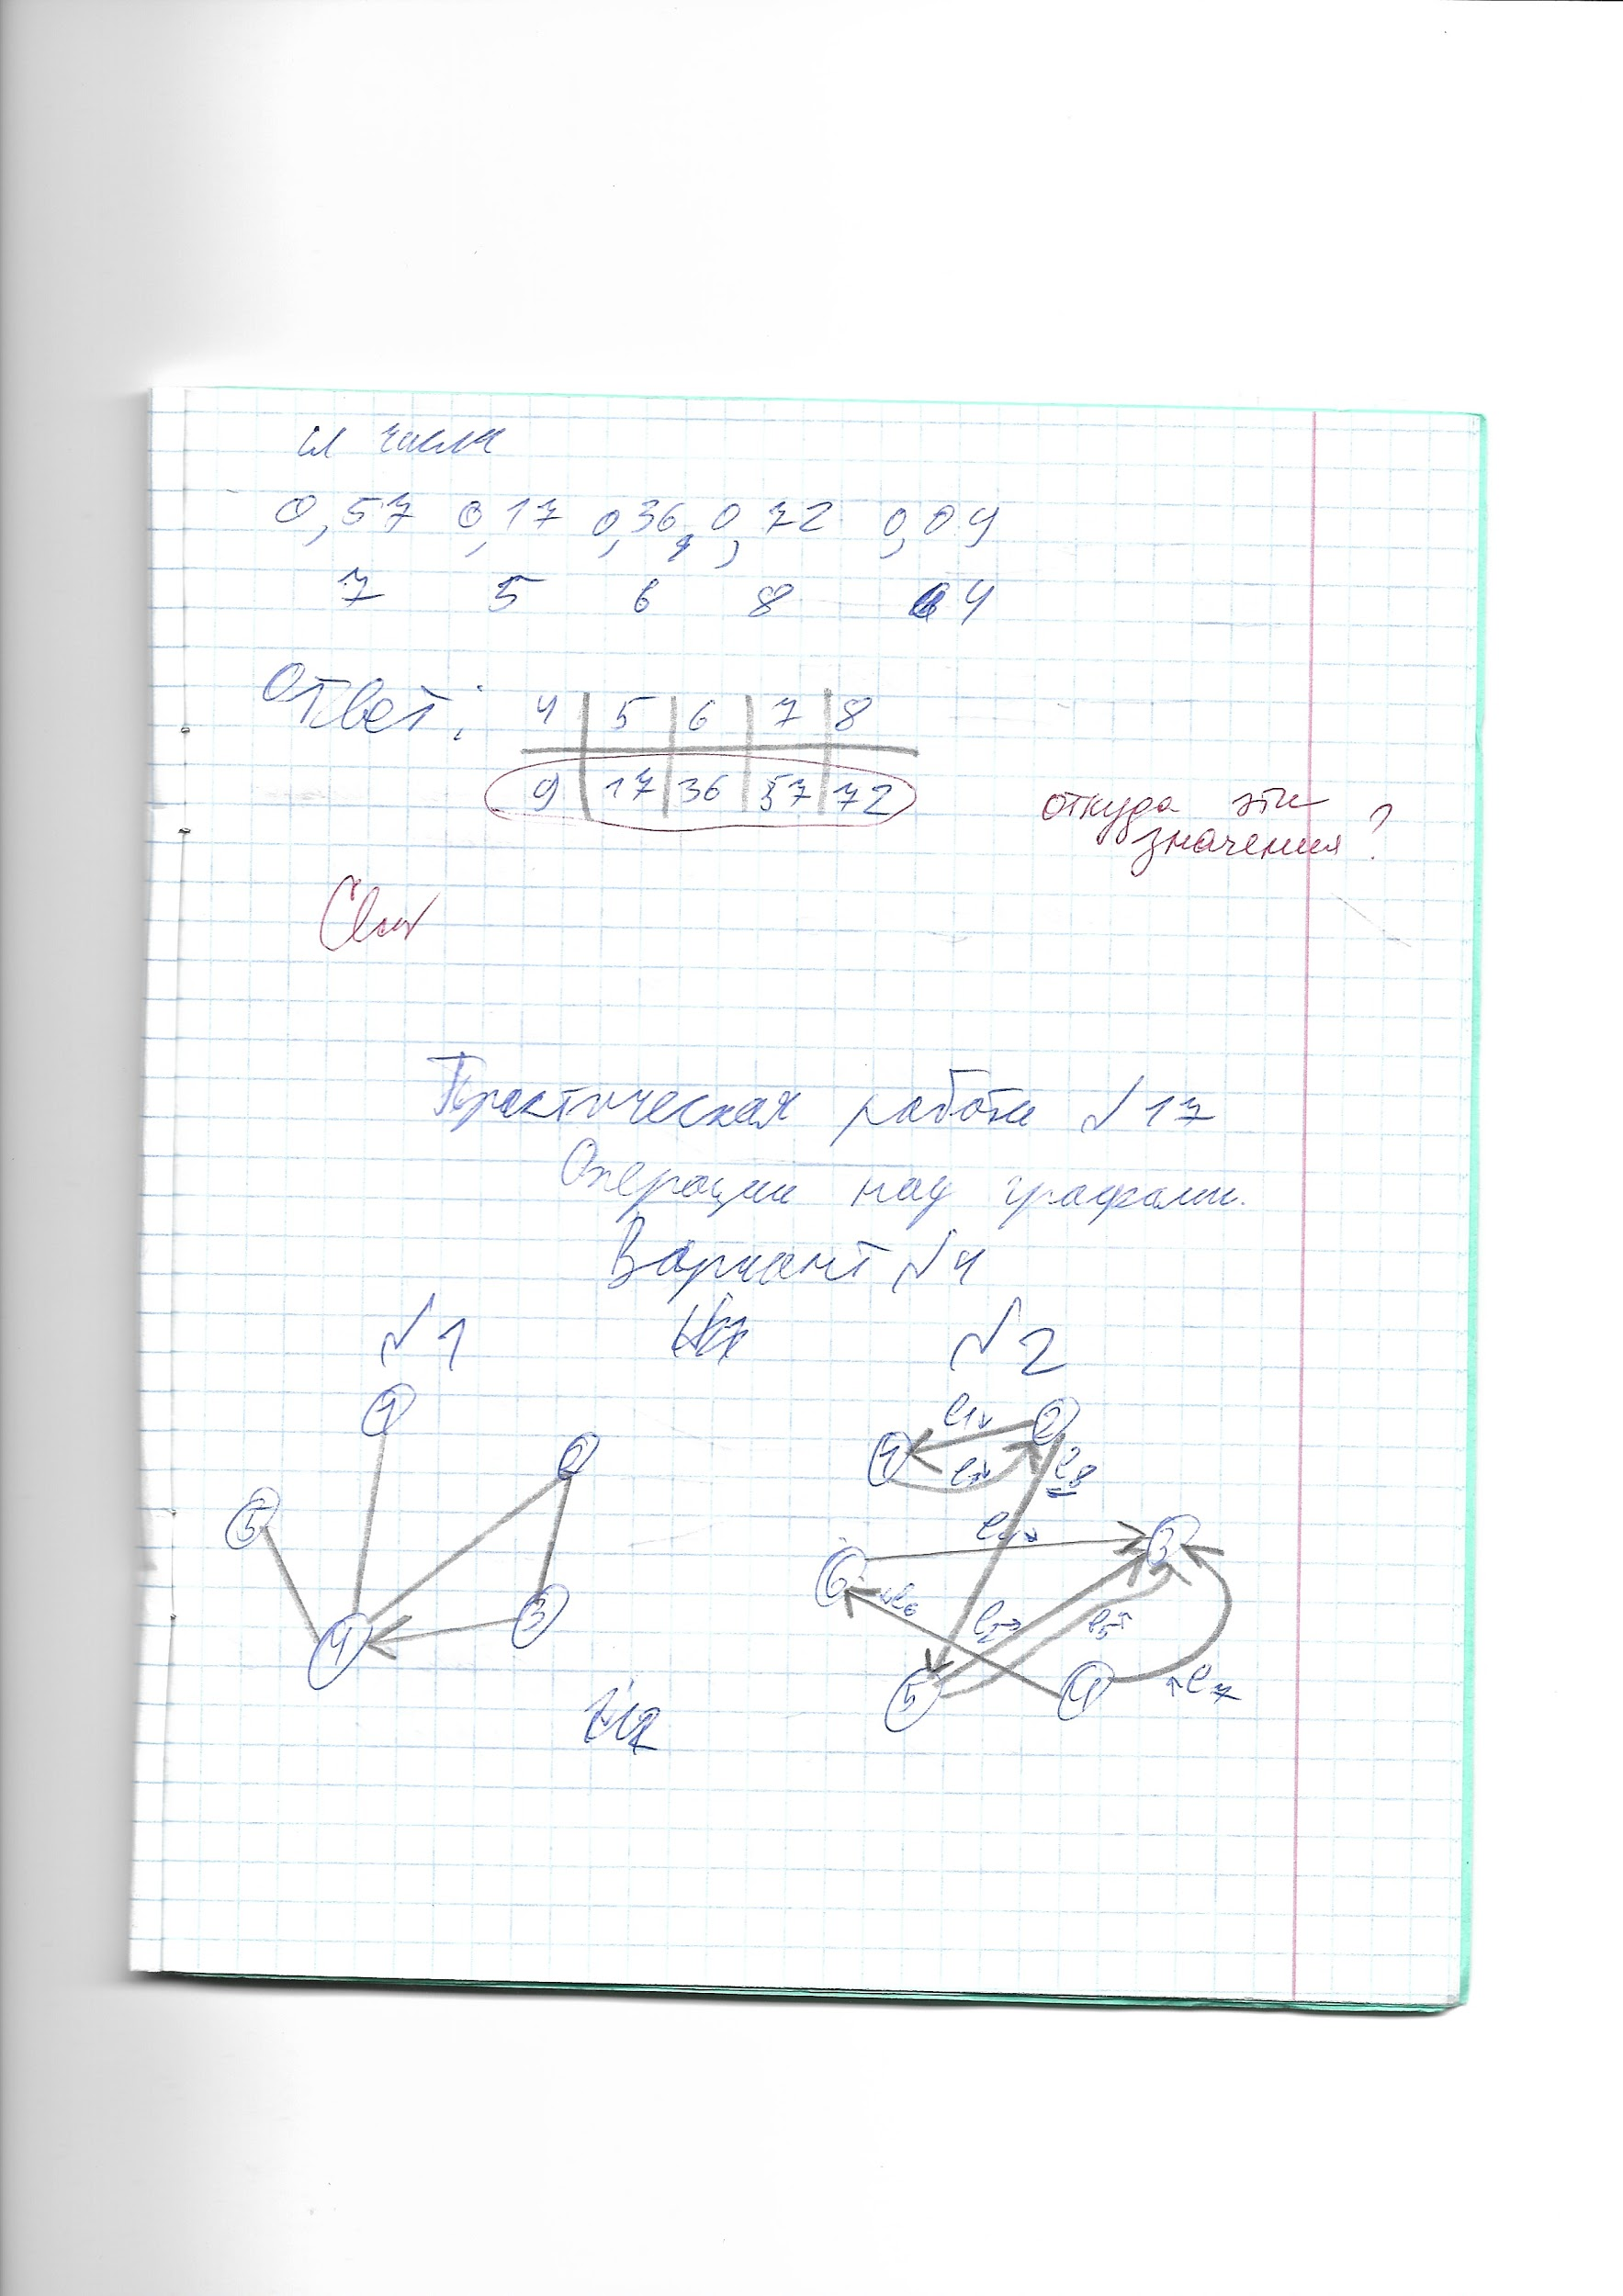 сл числа
0,57 0,17 0,36, 0,72 0,09
7 5 6 8 4
Ответ: 4 5 6 7 8
9 17 36 57 72
откуда эти
значения?
Практическая работа №17
Операции над графами.
Вариант №4
№1 №2
1 2 5 4 3
1 2 3 6 5 4
e1 e8 e6 e2 e5 e7